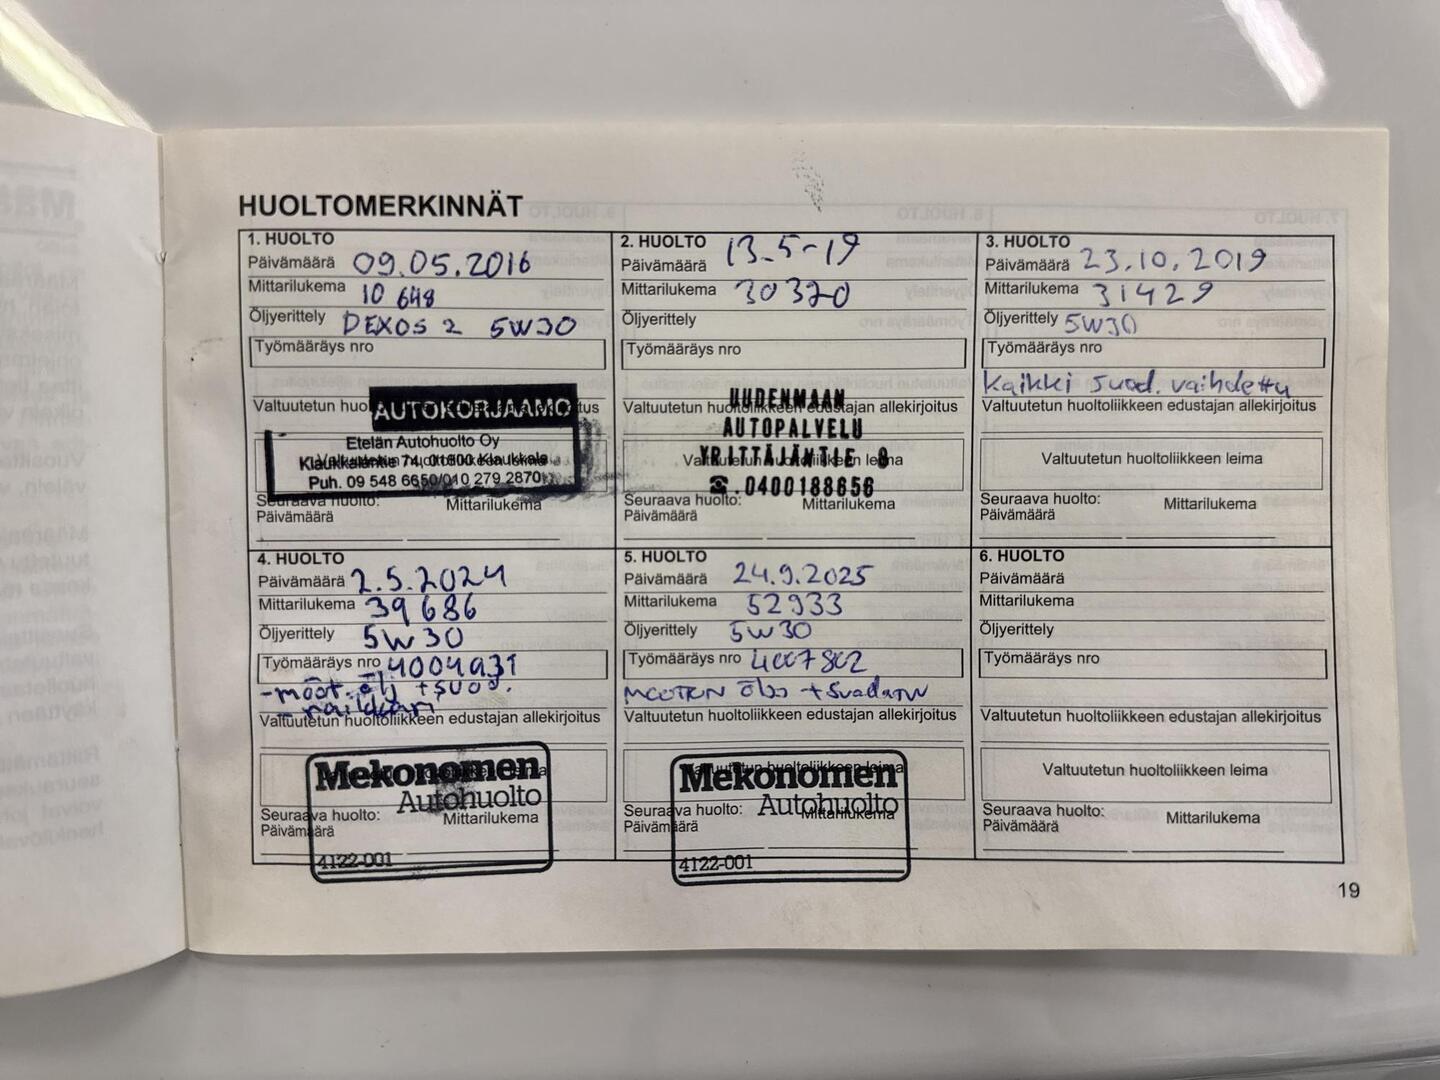 HUOLTOMERKINNÄT
1. HUOLTO
Päivämäärä 09.05.2016
Mittarilukema 10 648
Öljyerittely DEXOS 2 5W30
Työmääräys nro
Valtuutetun huoltoliikkeen edustajan allekirjoitus
AUTOKORJAAMO
Etelän Autohuolto Oy
Klaukkalantie 74, 01800 Klaukkala
Puh. 09 548 6650/010 279 2870
Valtuutetun huoltoliikkeen leima
Seuraava huolto:
Päivämäärä
Mittarilukema
2. HUOLTO
Päivämäärä 13.5-19
Mittarilukema 30320
Öljyerittely
Työmääräys nro
Valtuutetun huoltoliikkeen edustajan allekirjoitus
UUDENMAAN
AUTOPALVELU
YRITTÄJÄNTIE 8
☎.0400188656
Valtuutetun huoltoliikkeen leima
Seuraava huolto:
Päivämäärä
Mittarilukema
3. HUOLTO
Päivämäärä 23.10.2019
Mittarilukema 31429
Öljyerittely 5W30
Työmääräys nro
Kaikki suod. vaihdettu
Valtuutetun huoltoliikkeen edustajan allekirjoitus
Valtuutetun huoltoliikkeen leima
Seuraava huolto:
Päivämäärä
Mittarilukema
4. HUOLTO
Päivämäärä 2.5.2024
Mittarilukema 39686
Öljyerittely 5W30
Työmääräys nro 4004931
-moot.ölj +suod.
- raikkari
Valtuutetun huoltoliikkeen edustajan allekirjoitus
Mekonomen
Autohuolto
Seuraava huolto:
Päivämäärä
Mittarilukema
4122-001
5. HUOLTO
Päivämäärä 24.9.2025
Mittarilukema 52933
Öljyerittely 5W30
Työmääräys nro 4007802
MOOTTORIN + suodatin
Valtuutetun huoltoliikkeen edustajan allekirjoitus
Valtuutetun huoltoliikkeen leima
Mekonomen
Autohuolto
Seuraava huolto:
Päivämäärä
Mittarilukema
4122-001
6. HUOLTO
Päivämäärä
Mittarilukema
Öljyerittely
Työmääräys nro
Valtuutetun huoltoliikkeen edustajan allekirjoitus
Valtuutetun huoltoliikkeen leima
Seuraava huolto:
Päivämäärä
Mittarilukema
19